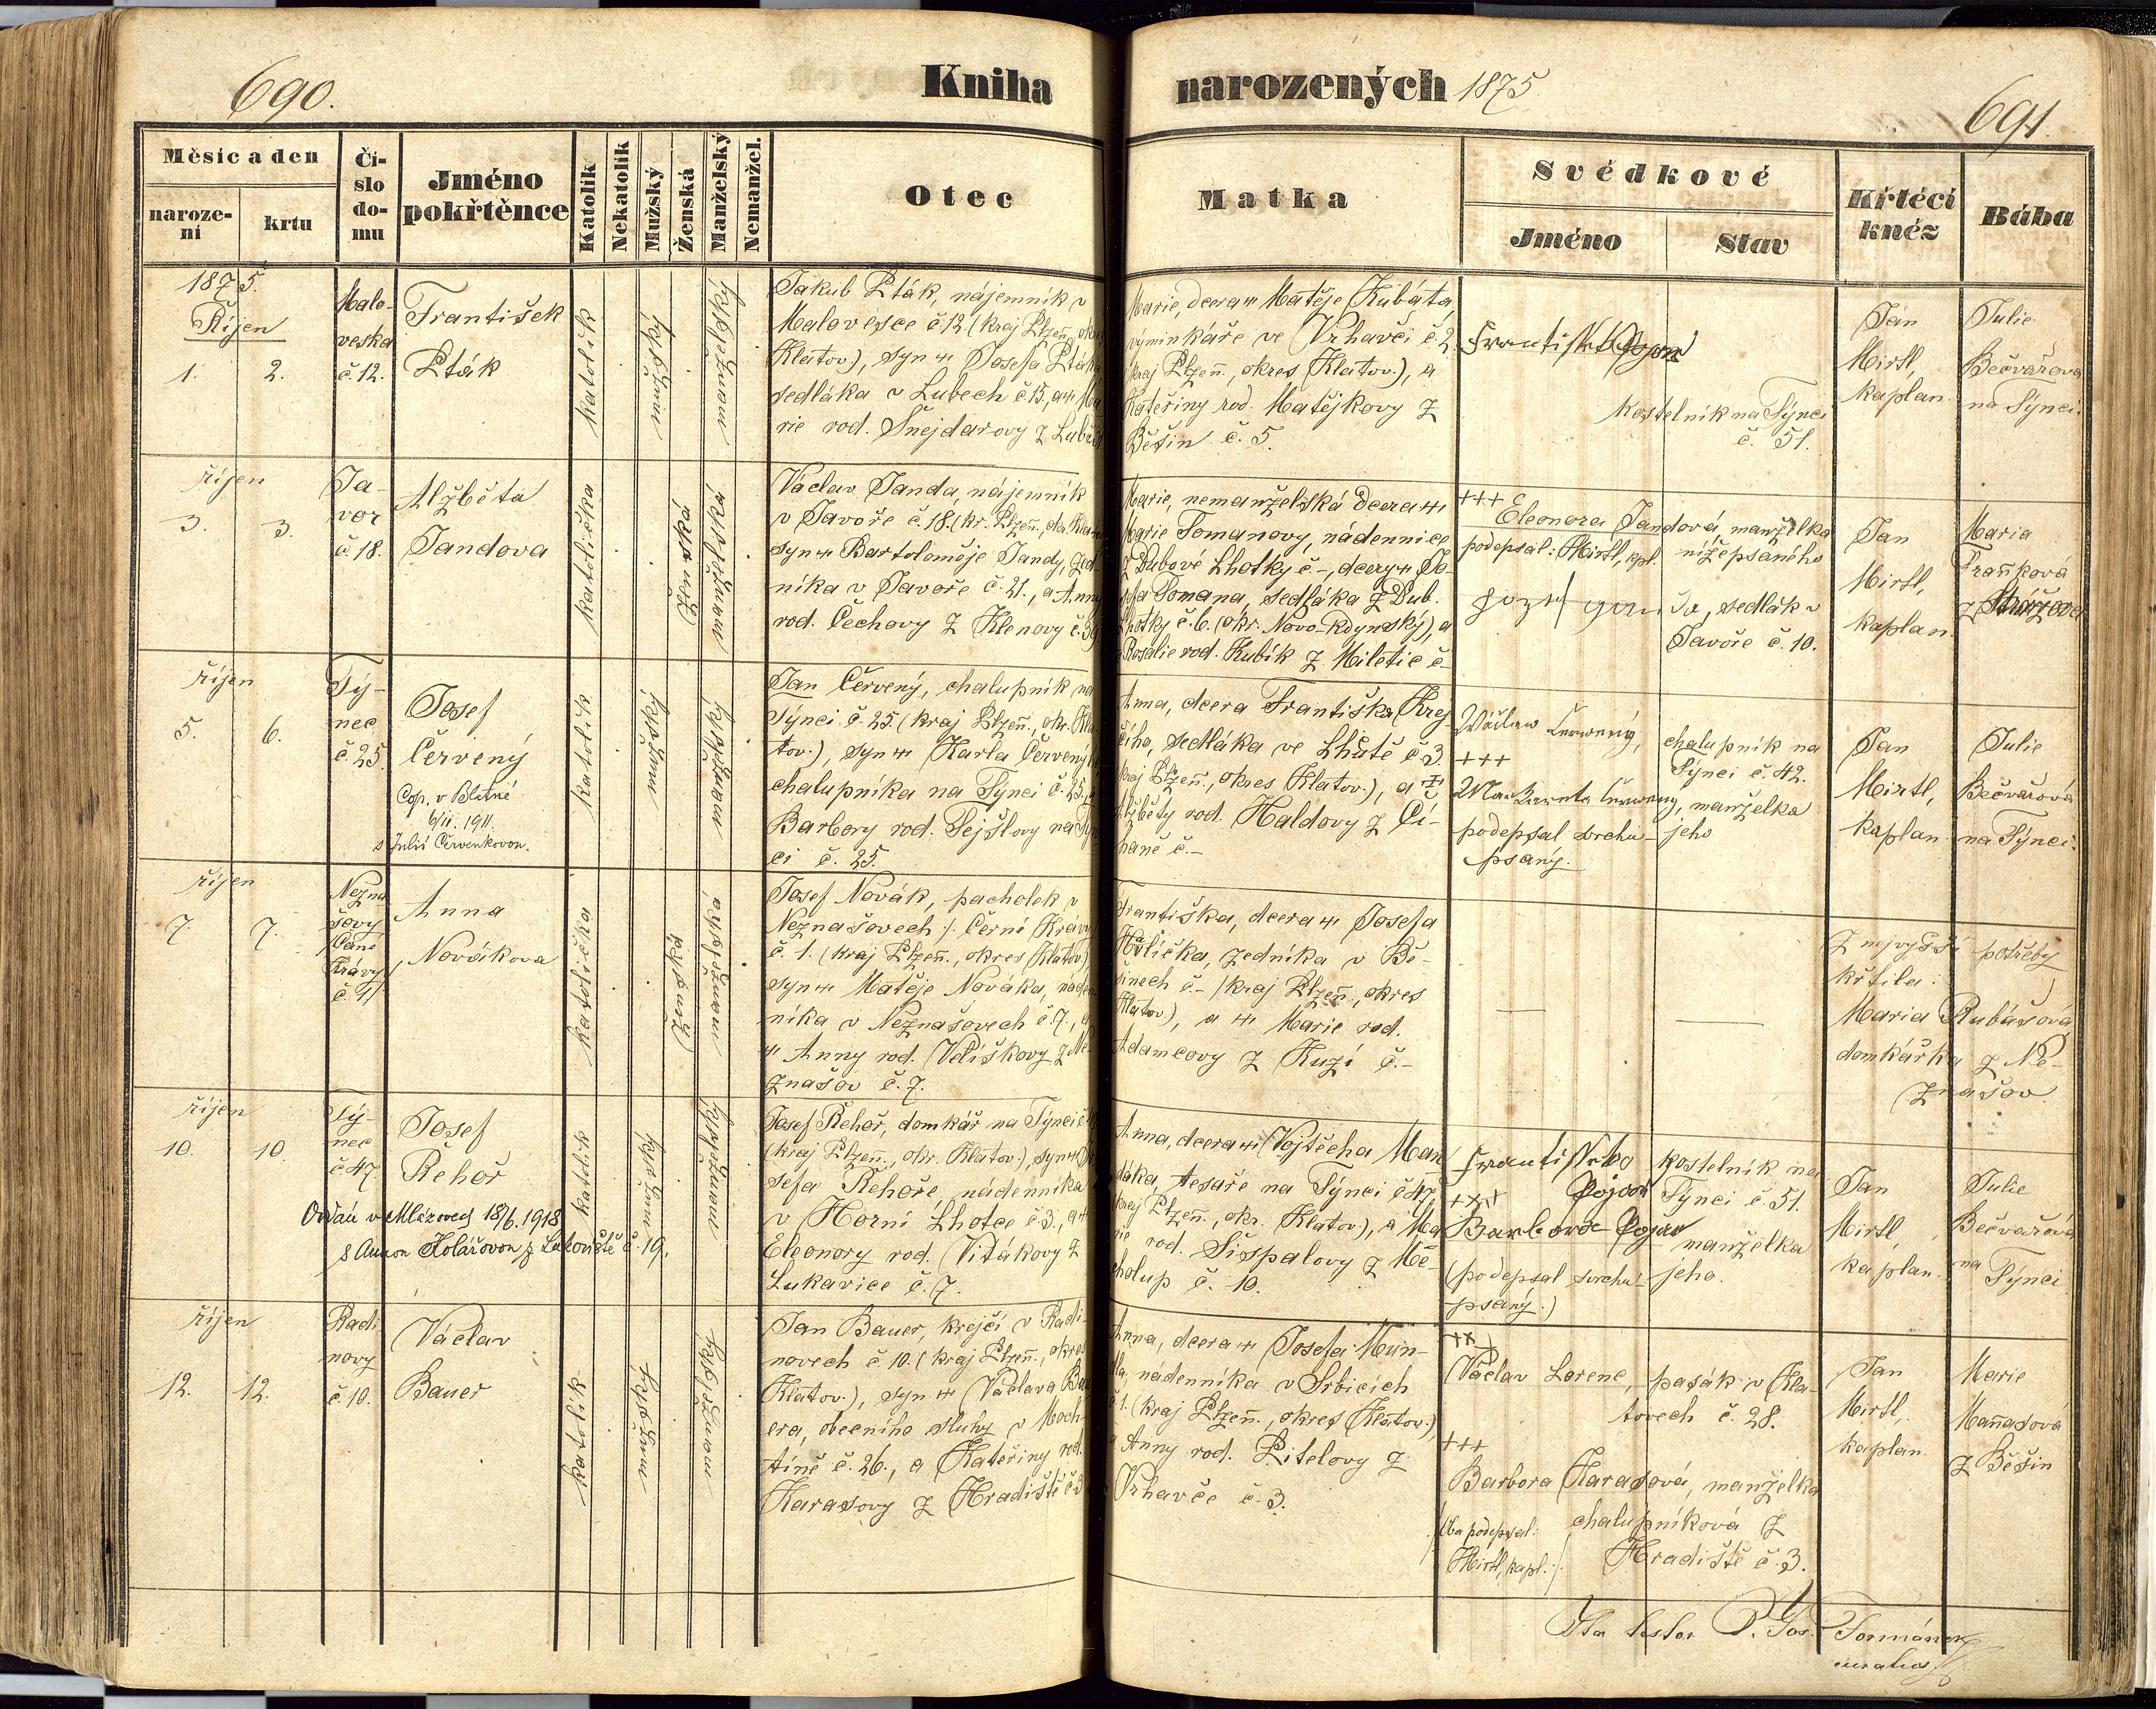 690.
Kniha
narozených 1875
691.
Měsíc a den
naroze-
ní
krtu
Čí-
slo
do-
mu
Jméno
pokřtěnce
Katolík
Nekatolík
Mužský
Ženská
Manželský
Nemanžel.
Otec
Matka
Svědkové
Jméno
Stav
Křtěcí
kněz
Bába
1875.
Říjen
1. 2.
Malo-
veska
č. 12.
František
Pták
katolík
mužský
manželský
Jakub Pták, nájemník v
Malovesce č 12. (kraj Plzeň., okres
Klatov.), syn Josefa Ptáka
sedláka v Lubech č 15, a Ma-
rie rod. Šnejdarovy z Lub
Marie, dcera Matěje Kubáta,
výminkáře ve Vrhavči č 2.
kraj Plzeň., okres Klatov.), a
Kateřiny rod. Matějkovy z
Běšin č. 5.
František
kostelník na Týnci
č. 51.
Jan
Mirtl,
kaplan.
Julie
Bečvářová
na Týnci.
říjen
3. 3.
Ja-
vor
č. 18.
Alžběta
Jandova
katolička
ženská
manželská
Václav Janda, nájemník
v Javoře č. 18. (kr. Plzeň., okr. Klatov.
syn Bartoloměje Jandy, zed-
níka v Javoře č. 21., a Anny
rod. Čechovy z Klenovy č. 39
Marie, nemanželská dcera
Marie Tomanovy, nádennice
z Dubové Lhotky č -, dcery Jo-
sefa Tomana, sedláka z Dub.
Lhotky č. 6. (okr. Novo-Kdynský), a
Rosalie rod. Kubík z Miletic č -
+++
Eleonora Jandová, manželka
podepsal: Mirtl, kpl. nížepsaného
Jozef Janda, sedlák v
Javoře č. 10.
Jan
Mirtl,
kaplan.
Maria
Fraňková
z Strážova
říjen
5. 6.
Tý-
nec
č. 25.
Josef
Červený
Cop. v Blatné
6/11. 1911.
s Julií Červenkovou.
katolík
mužský
manželský
Jan Červený, chalupník na
Týnci č. 25. (kraj Plzeň., okr. Kla-
tov.), syn Karla Červeného
chalupníka na Týnci č. 25., a
Barbory rod. Tejšlovy na Týn-
ci č. 25.
Anna, dcera Františka Krej-
čího, sedláka ve Lhůtě č 3.
kraj Plzeň., okres Klatov.), a
Alžběty rod. Haldovy z Či-
haně č. -
Wáclaw Čerwený,
+++
Markareta Čerwený, manželka
podepsal svrchu- jeho
psaný.
chalupník na
Týnci č. 42.
Jan
Mirtl,
kaplan
Julie
Bečvářová
na Týnci.
říjen
7. 7.
Nezna-
šovy
Černé
Krávy
č. 1/
Anna
Novákova
katolička
ženská
manželská
Josef Novák, pacholek v
Neznašovech /: Černí Krávy
č. 1. (kraj Plzeň., okres Klatov.)
syn Matěje Nováka, náden-
níka v Neznašovech č. 7., a
Anny rod. Velíškovy z Ne-
znašov č. 7.
Františka, dcera Josefa
Havlíčka, zedníka v Bě-
šinech č. - (kraj Plzeň., okres
Klatov.), a Marie rod.
Adamcovy z Kuzí č. -
Z nejvyšší potřeby
křtila:
Maria Rubášová
domkářka z Ne-
znašov.
říjen
10. 10.
Tý-
nec
č 47.
Josef
Řehoř
Oddán v Mlázovech 18/6. 1918
s Annou Kolářovou z Lukoviště č. 19.
katolík
mužský
manželský
Josef Řehoř, domkář na Týnci č 47
(kraj Plzeň., okr. Klatov.), syn Jo-
sefa Řehoře, nádenníka
v Horní Lhotce č 3., a
Eleonory rod. Vitákovy z
Lukavice č. 7.
Anna, dcera Vojtěcha Man-
dáka, tesaře na Týnci č 47.
kraj Plzeň., okr. Klatov.), a Ma-
rie rod. Šišpalovy z Mě-
cholup č. 10.
František
+++
Barbora
(podepsal svrchu-
psaný.)
kostelník na
Týnci č 51.
manželka
jeho.
Jan
Mirtl,
kaplan.
Julie
Bečvářová
na Týnci
říjen
12. 12.
Radi-
novy
č. 10.
Václav
Bauer
katolík
mužský
manželský
Jan Bauer, krejčí v Radi-
novech č 10. (kraj Plzeň., okres
Klatov.), syn Václava Bau-
era, obecního sluhy v Moch-
tíně č. 26., a Kateřiny rod.
Karasovy z Hradiště č 3
Anna, dcera Josefa Mun-
dla, nádenníka v Srbicích
č 1. (kraj Plzeň., okres Klatov.)
a Anny rod. Pitelovy z
Vrhavče č. 3.
+++
Václav Lorenc, pasák v Kla-
tovech č. 28.
+++
Barbora Karasová, manželka
chalupníková z
Hradiště č. 3.
/:ba podepsal:
Mirtl, kapl:/
Jan
Mirtl,
kaplan
Marie
Maňasová
z Běšin
Ita testor P. Jos. Formánek